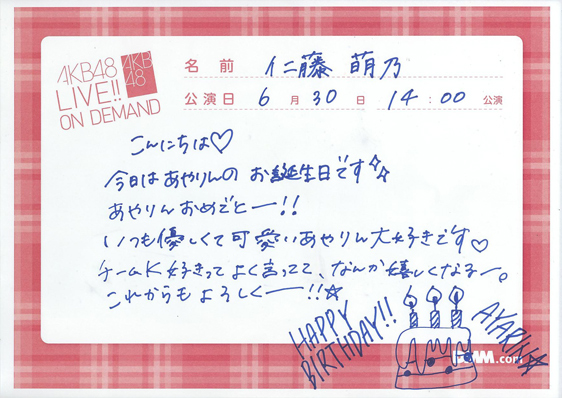 AKB48
LIVE!!
ON DEMAND
AKB
48
名前 仁藤 萌乃
公演日 6月30日 14:00 公演
こんにちは♡
今日はあやりんのお誕生日です☆☆
あやりんおめでとー!!
いつも優しくて可愛いあやりん大好きです♡
チームK好きってよく言ってて、なんか嬉しくなるー。
これからもよろしくー!!☆
HAPPY
BIRTHDAY!!
.com